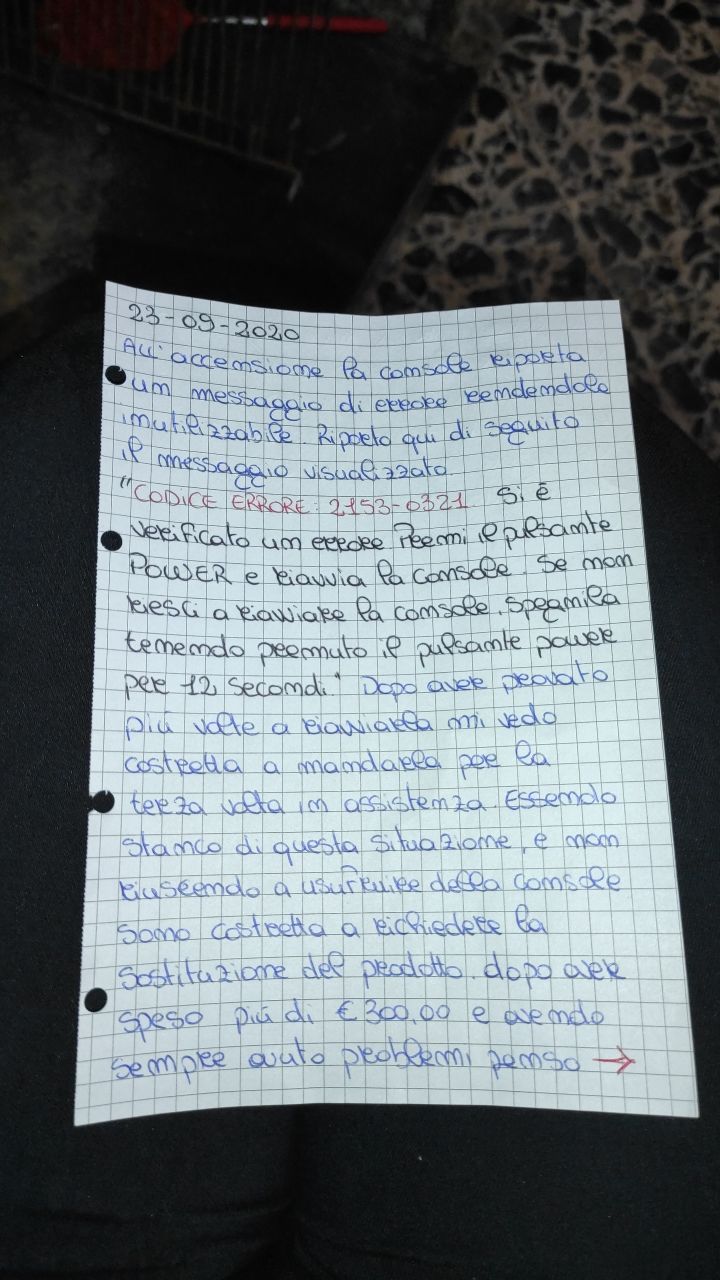 23-09-2020
All'accensione la console riporta
um messaggio di errore rendendola
inutilizzabile. Riporto qui di seguito
il messaggio visualizzato.
"CODICE ERRORE: 2153-0321. Si è
verificato un errore Premi il pulsante
POWER e riavvia la console. Se non
riesci a riavviare la console, spegnila
tenendo premuto il pulsante power
per 12 secondi." Dopo aver provato
più volte a riavviarla mi vedo
costretta a mandarla per la
terza volta in assistenza. Essendo
stanco di questa situazione, e non
riuscendo a usufruire della console
sono costretta a richiedere la
sostituzione del prodotto. dopo aver
speso più di €300,00 e avendo
sempre avuto problemi penso →